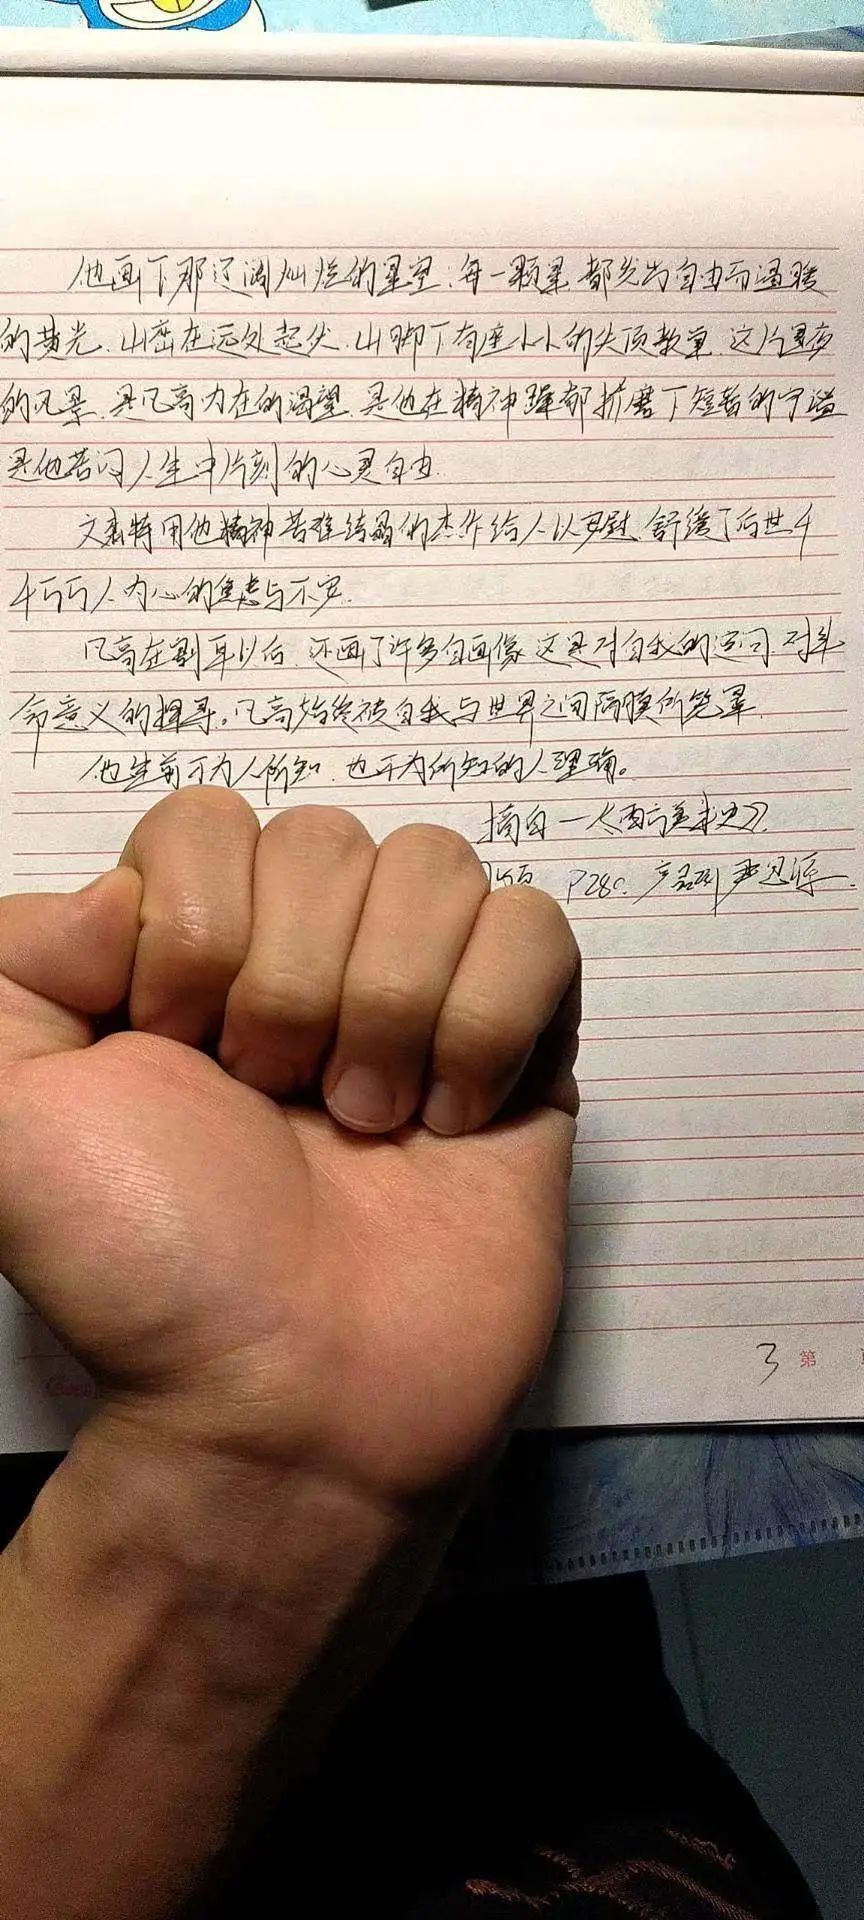 他画下那辽阔灿烂的星空,每一颗星都发出自由而温暖
的黄光,山峦在远处起伏,山脚下有座小小的尖顶教堂,这片星夜
的风景,是凡高内在的渴望,是他在精神 折磨下短暂的宁谧
是他苦闷人生中片刻的心灵自由.
文森特用他精神苦难结 的杰作给人以安慰,舒缓了后世千
千万万人内心的焦虑与不安.
凡高在割耳以后,还画了许多自画像,这是对自我的追问,对生
命意义的探寻。凡高始终被自我与世界之间隔膜所笼罩.
他生前不为人所知,也不为所知的人理 。
摘自一《西方美术史》.
P280.
3 第